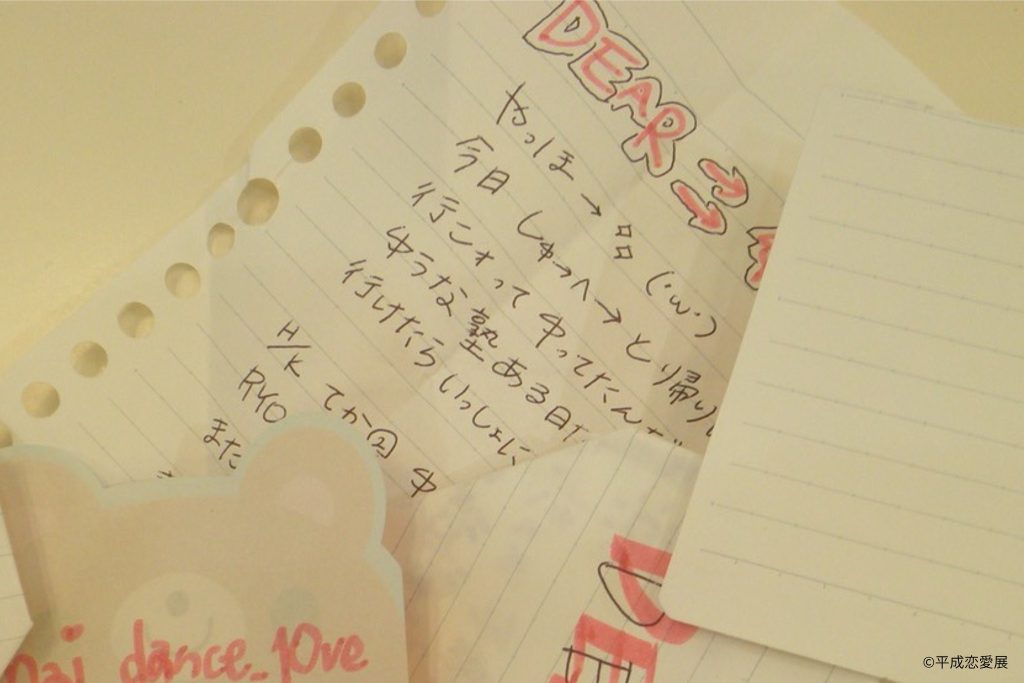 DEAR →→
やっほ→品(´ω`)
今日 しゅっへ→とり帰り
行こォって ゆってたんだ
ゆうな塾ある日だ
行けたら いっしょに
H/K てか図 ゆ
RYO
また
DE
dance_love
©平成恋愛展